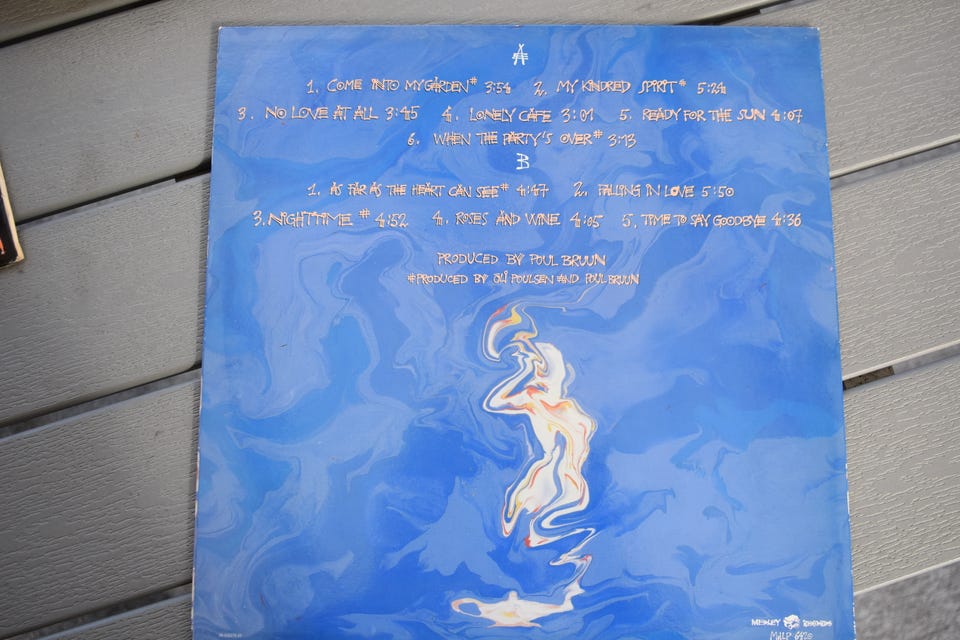 A
1. COME INTO MY GARDEN# 3:54 2. MY KINDRED SPIRIT# 5:24
3. NO LOVE AT ALL 3:45 4. LONELY CAFE 3:01 5. READY FOR THE SUN 4:07
6. WHEN THE PARTY'S OVER# 3:13
B
1. AS FAR AS THE HEART CAN SEE# 4:47 2. FALLING IN LOVE 5:50
3. NIGHTTIME # 4:52 4. ROSES AND WINE 4:05 5. TIME TO SAY GOODBYE 4:36
PRODUCED BY POUL BRUUN
#PRODUCED BY OLI POULSEN AND POUL BRUUN
MEDLEY RECORDS
MdLP